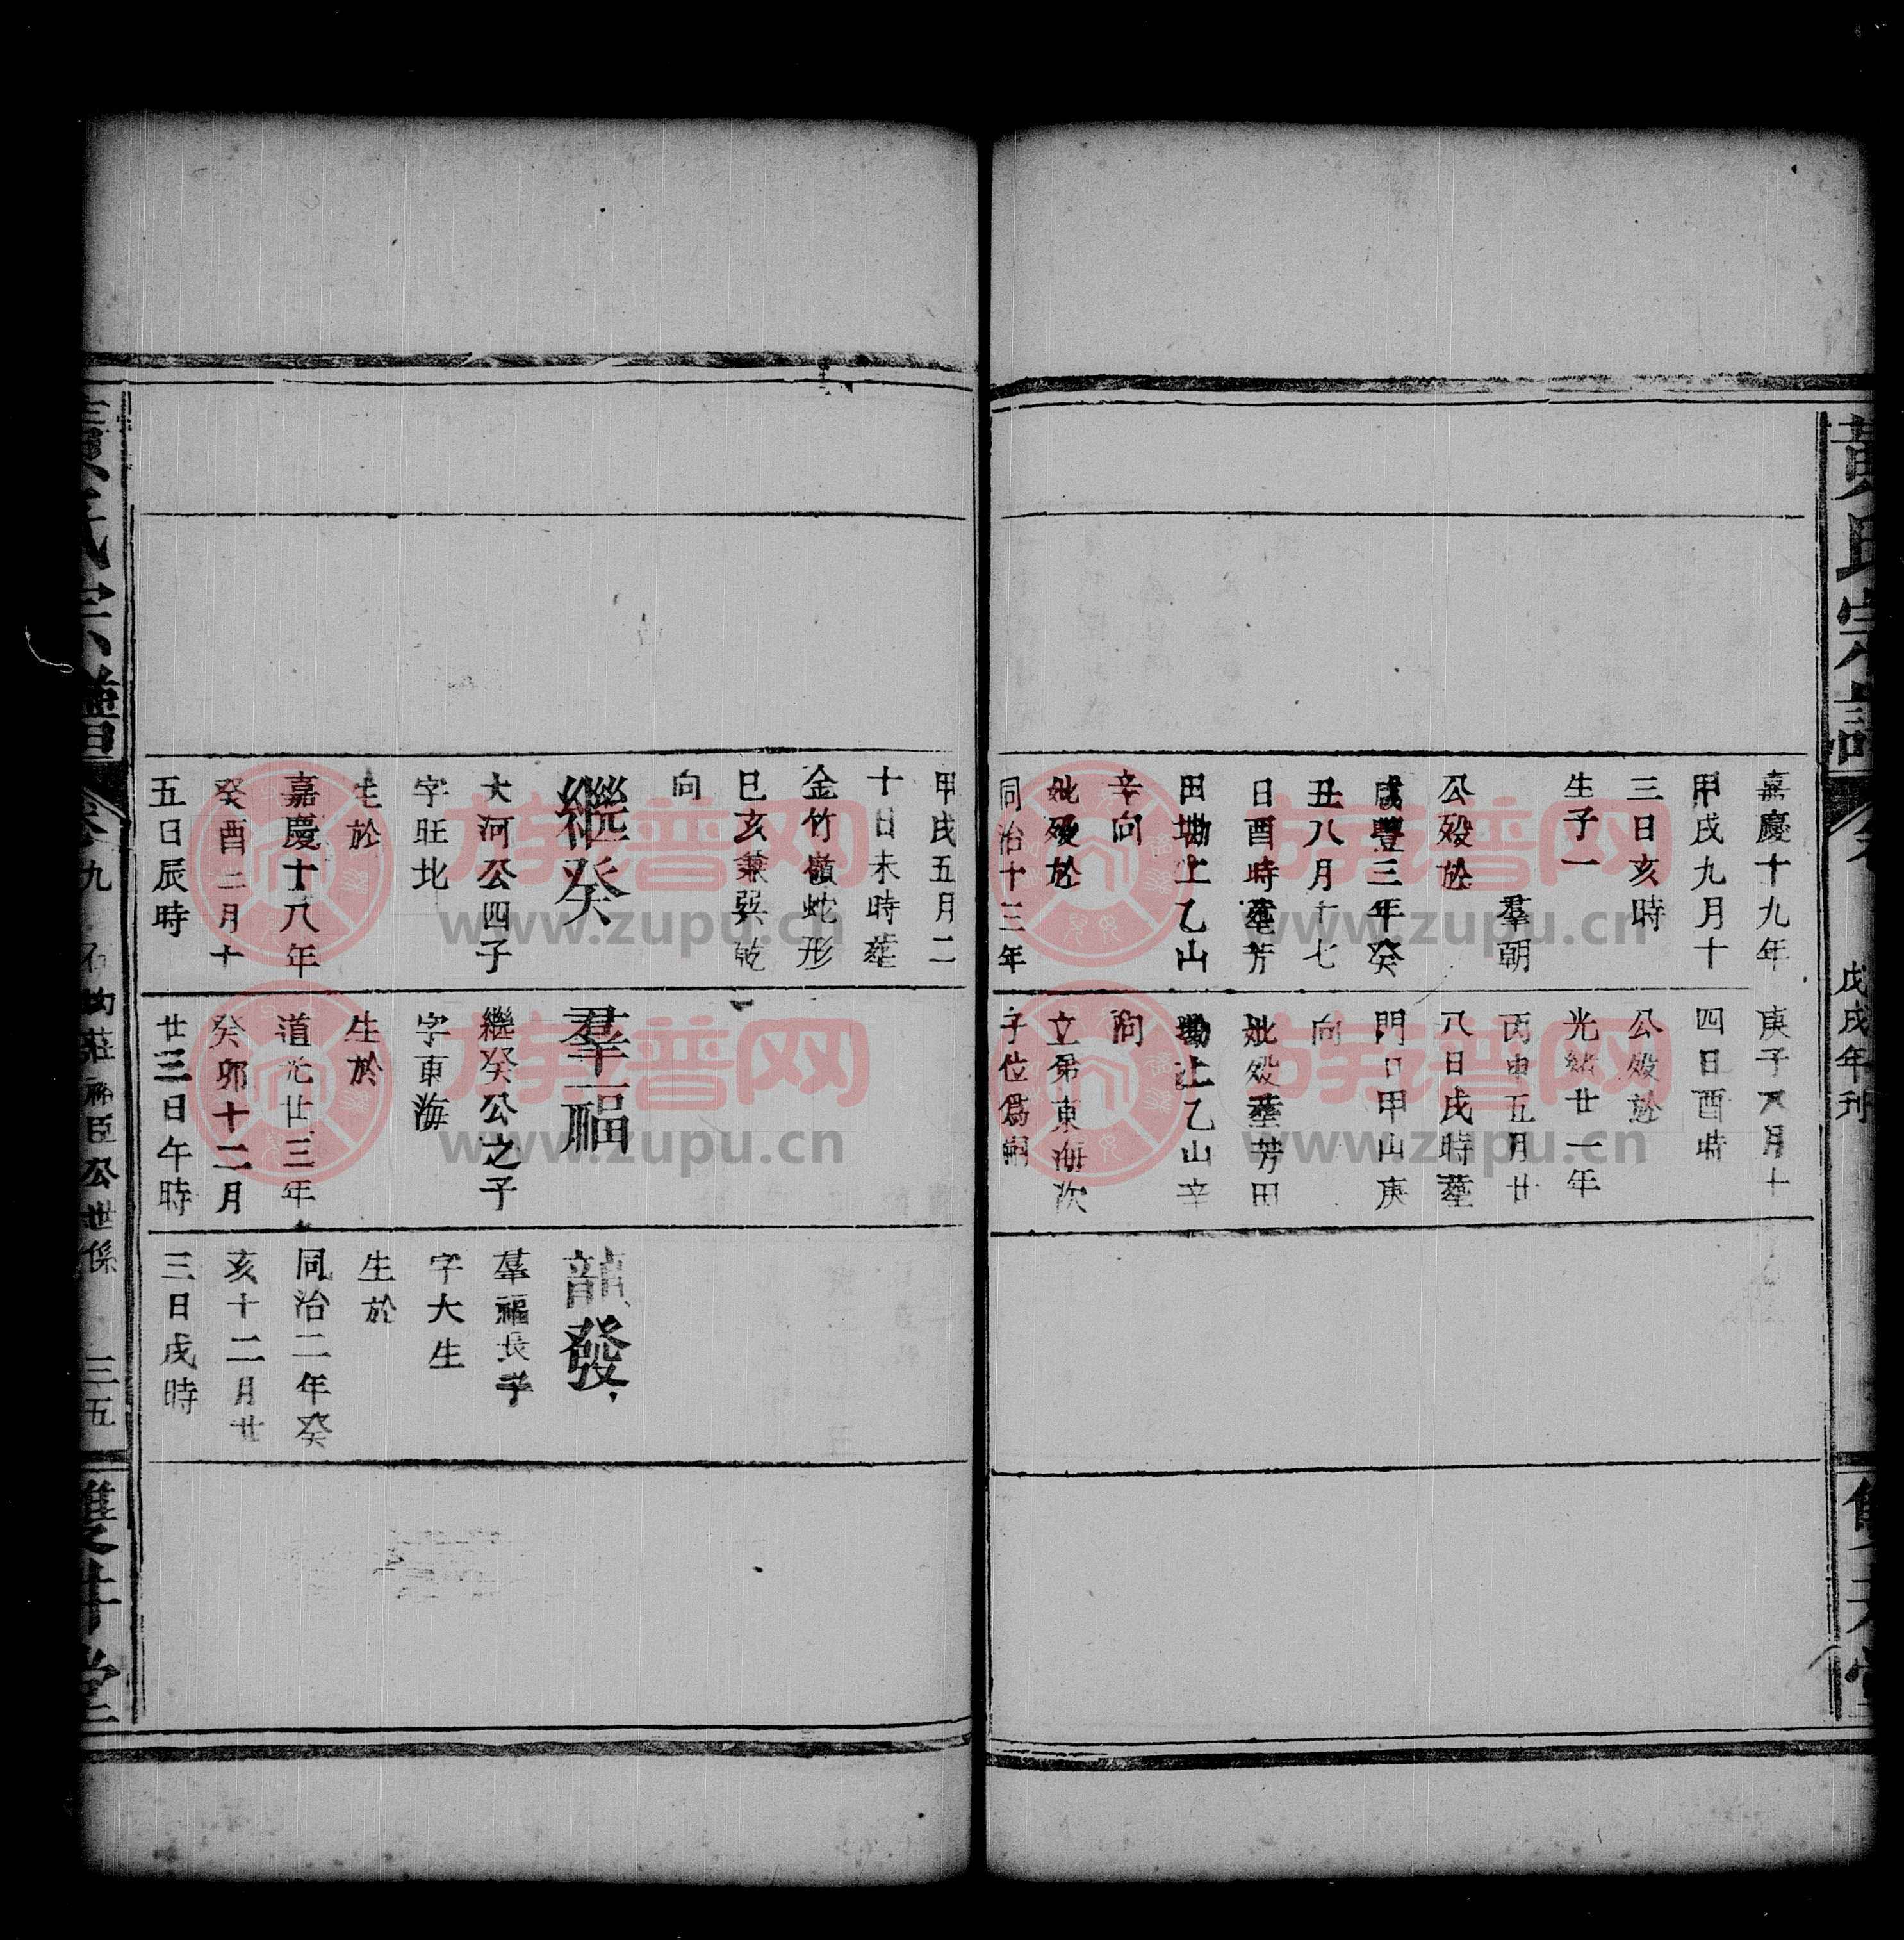 黃氏宗譜
戊戌年刋
嘉慶十九年
甲戌九月十
三日亥時
生子一
羣朝
公殁於
咸豐三年癸
丑八月十七
日酉時塟芳
田坳上乙山
辛向
妣殁於
同治十三年
庚子八月十
四日酉時
公殁於
光緒廿一年
丙申五月廿
八日戌時塟
門口甲山庚
向
妣殁塟芳田
坳上乙山辛
向
立弟東海次
子位爲嗣
甲戌五月二
十日未時塟
金竹嶺蛇形
巳亥兼巽乾
向
繼癸
大河公四子
字旺北
生於
嘉慶十八年
癸酉二月十
五日辰時
羣福
繼癸公之子
字東海
生於
道光廿三年
癸卯十二月
廿三日午時
發
羣福長子
字大生
生於
同治二年癸
亥十二月廿
三日戌時
黃氏宗譜
卷九
莊
臣公世係
三五
雙井堂
族谱网
www.zupu.cn
族谱网
www.zupu.cn
族谱网
www.zupu.cn
族谱网
www.zupu.cn